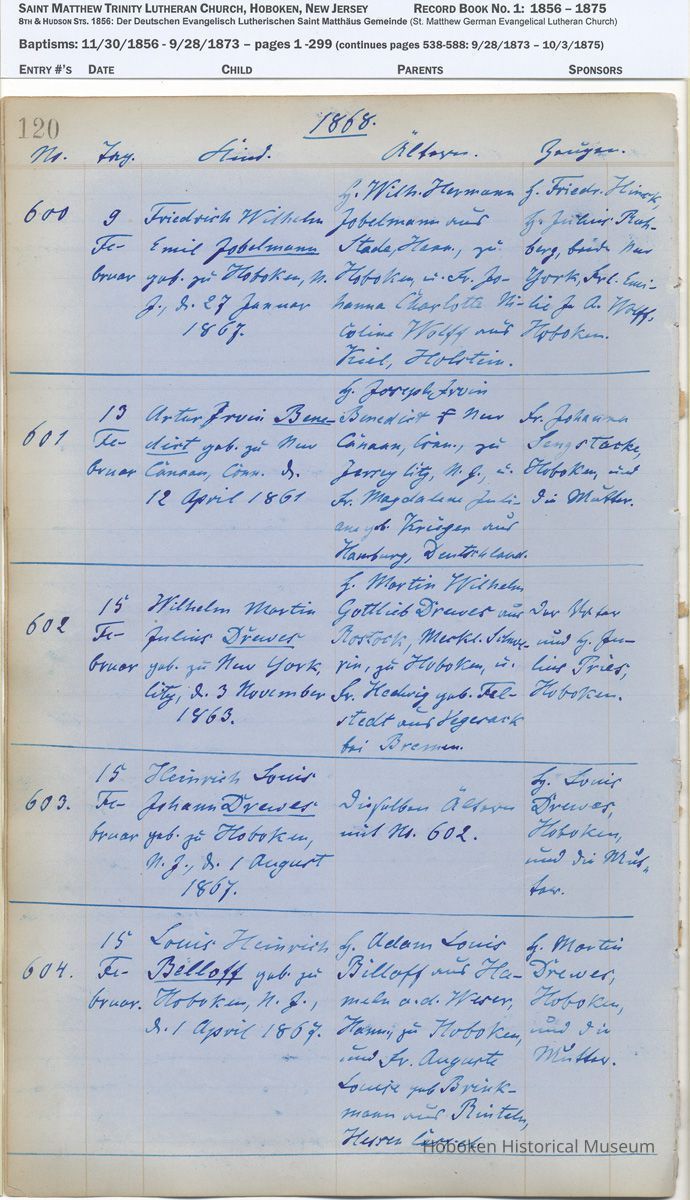 SAINT MATTHEW TRINITY LUTHERAN CHURCH, HOBOKEN, NEW JERSEY RECORD BOOK NO. 1: 1856 – 1875
8TH & HUDSON STS. 1856: Der Deutschen Evangelisch Lutherischen Saint Matthäus Gemeinde (St. Matthew German Evangelical Lutheran Church)
Baptisms: 11/30/1856 - 9/28/1873 – pages 1 -299 (continues pages 538-588: 9/28/1873 – 10/3/1875)
ENTRY #'S DATE CHILD PARENTS SPONSORS
120
1868.
No. Tag. Kind. Ältern. Zeugen.
600
9
Fe-
bruar
Friedrich Wilhelm
Emil Jobelmann
geb. zu Hoboken, N.
J., d. 27 Januar
1867.
H. Wilh. Hermann
Jobelmann aus
Stade, Hann., zu
Hoboken, u. Fr. Jo-
hanna Charlotte Ni-
coline Wolff aus
Kiel, Holstein.
H. Friedr. Hinck
H. Julius Ruh-
berg, beide New
York, Frl. Emi-
lie J. A. Wolff,
Hoboken.
601
13
Fe-
bruar
Artur Irvin Bene-
dict geb. zu New
Canaan, Conn. d.
12 April 1861
H. Joseph Irvin
Benedict New
Canaan, Conn., zu
Jersey City, N. J., u.
Fr. Magdalene Juli-
ane geb. Krüger aus
Hamburg, Deutschland.
Fr. Johanna
Sengstacke,
Hoboken, und
die Mutter.
602
15
Fe-
bruar
Wilhelm Martin
Julius Drewes
geb. zu New York,
City, d. 3 November
1863.
H. Martin Wilhelm
Gottlieb Drewes aus
Rostock, Meckl. Schwe-
rin, zu Hoboken, u.
Fr. Hedwig geb. Fel-
stedt aus Vegesack
bei Bremen.
Der Vater
und H. Ju-
lius Pries,
Hoboken.
603.
15
Fe-
bruar
Heinrich Louis
Johann Drewes
geb. zu Hoboken,
N. J., d. 1 August
1867.
Dieselben Ältern
mit No. 602.
H. Louis
Drewes,
Hoboken,
und die Mut-
ter.
604.
15
Fe-
bruar.
Louis Heinrich
Billoff geb. zu
Hoboken, N. J.,
d. 1 April 1867.
H. Adam Louis
Billoff aus Ha-
meln a. d. Weser,
Hann., zu Hoboken,
und Fr. Auguste
Louise geb Brink-
mann aus Rinteln,
Hessen
H. Martin
Drewes,
Hoboken,
und die
Mutter.
Hoboken Historical Museum